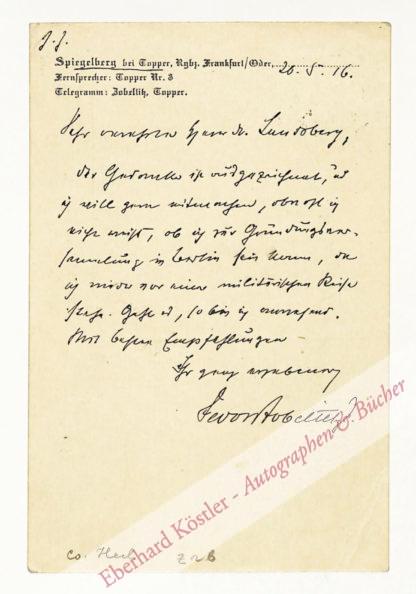 z. Z.
Spiegelberg bei Topper, Rgbz. Frankfurt/Oder, 20. 5. 16.
Fernsprecher: Topper Nr. 3
Telegramm: Zobeltitz, Topper.
Sehr verehrter Herr Dr. Landsberg,
der Gedanke ist ausgezeichnet, und
ich will gern mitmachen, obwohl ich
nicht weiß, ob ich zur Gründungsver-
sammlung in Berlin sein kann, da
ich wieder vor einer militärischen Reise
stehe. Geht es, so bin ich anwesend.
Mit besten Empfehlungen
Ihr ganz ergebener
Fedor v. Zobeltitz
co. Hech Z 26
Eberhard Köstler - Autographen & Bücher